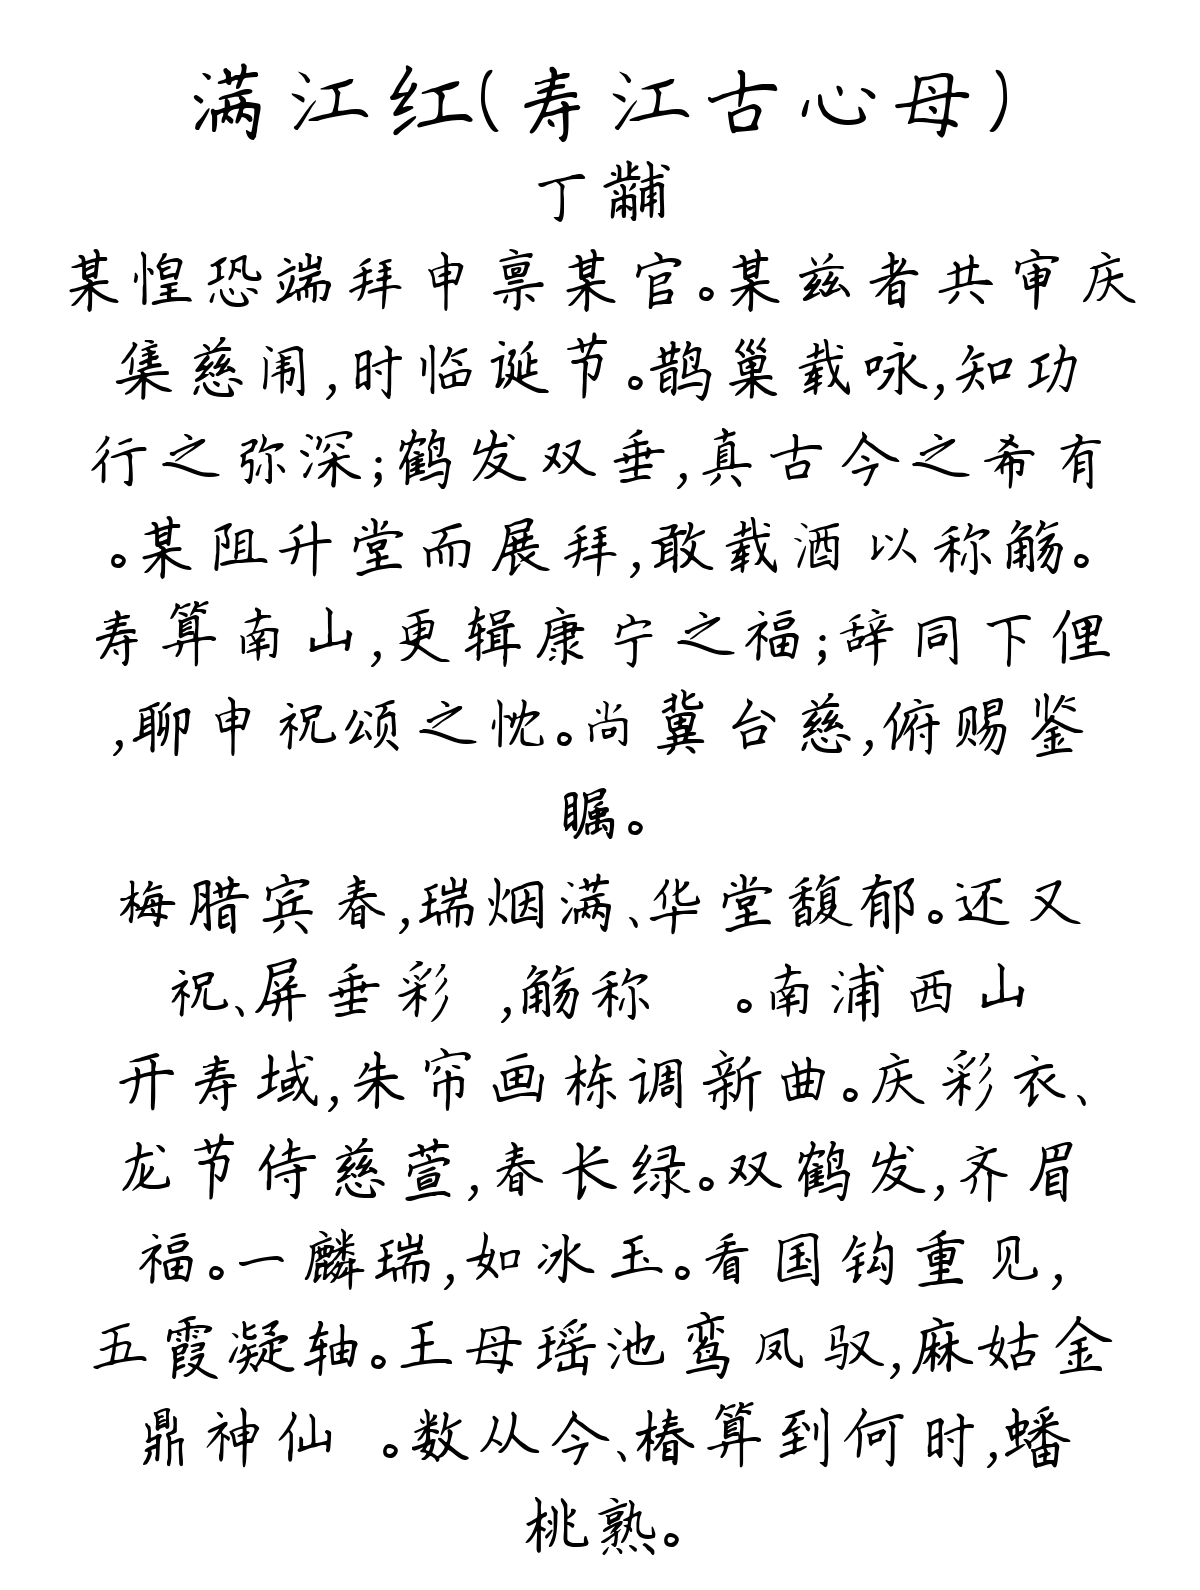 满江红(寿江古心母)
丁黼
某惶恐端拜申禀某官。某兹者共审庆
集慈闱,时临诞节。鹊巢载咏,知功
行之弥深;鹤发双垂,真古今之希有
。某阻升堂而展拜,敢载酒以称觞。
寿算南山,更辑康宁之福;辞同下俚
,聊申祝颂之忱。尚冀台慈,俯赐鉴
瞩。
梅腊宾春,瑞烟满、华堂馥郁。还又
祝、屏垂彩 ,觞称 。南浦西山
开寿域,朱帘画栋调新曲。庆彩衣、
龙节侍慈萱,春长绿。双鹤发,齐眉
福。一麟瑞,如冰玉。看国钧重见,
五霞凝轴。王母瑶池鸾凤驭,麻姑金
鼎神仙 。数从今、椿算到何时,蟠
桃熟。